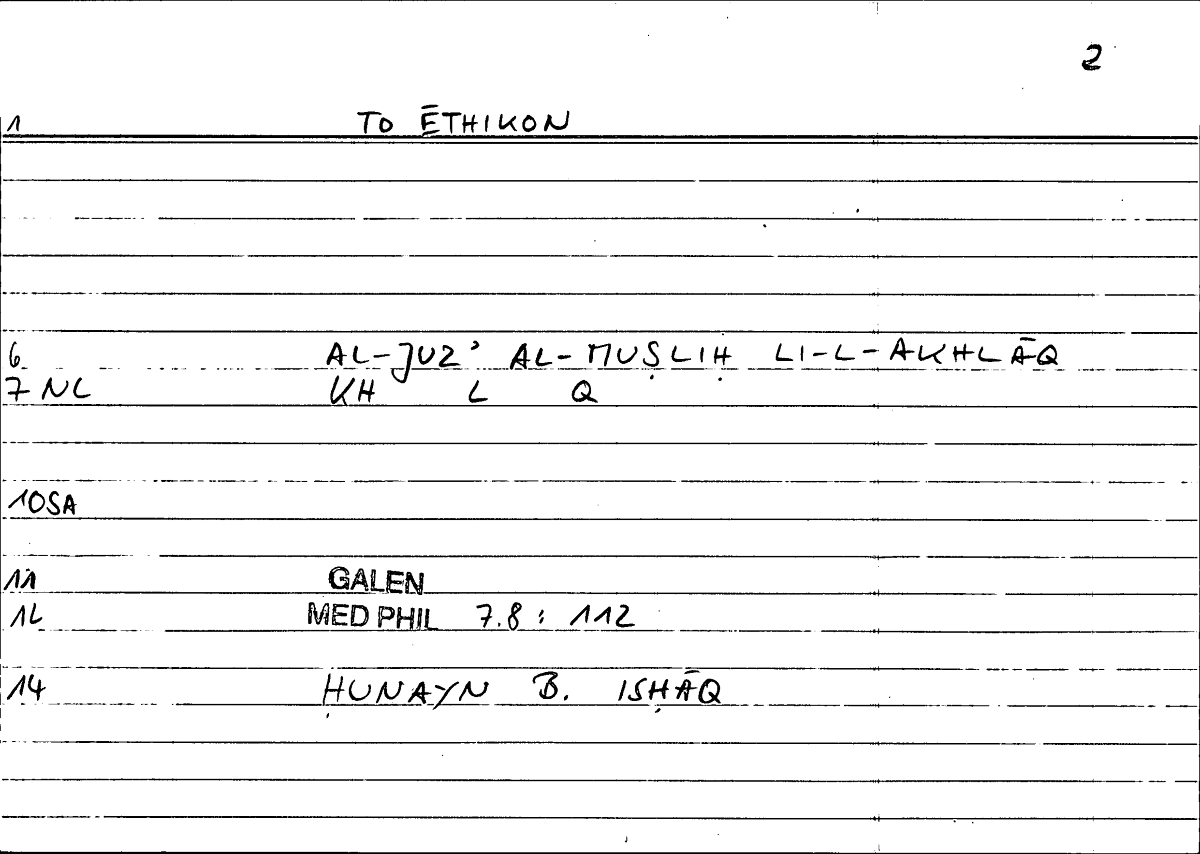 2
1 TO ĒTHIKON
6 AL-JUZ’ AL-MUṢLIḤ LI-L-AKHLĀQ
7 NL KH L Q
10SA
11 GALEN
12 MED PHIL 7.8 : 112
14 ḤUNAYN B. ISḤĀQ